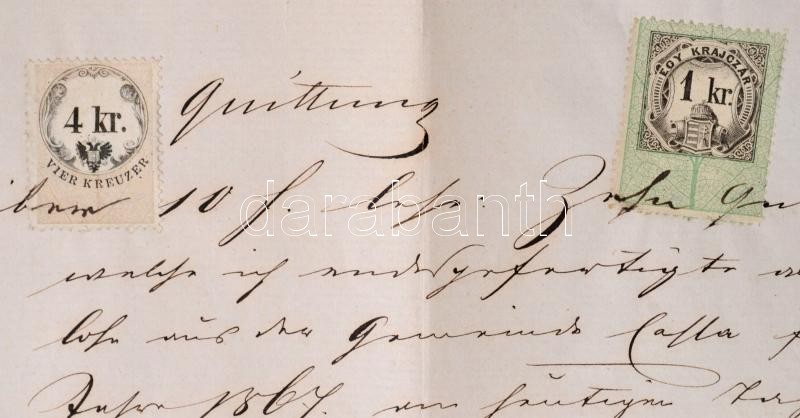 4 kr.
VIER KREUZER
EGY KRAJCZÁR
1 kr.
Quittung
über 10 f. Zehn Gu
welche ich endesgefertigte
aus der Gemeinde Cassa
Jahre 1867. am heutigen Ta
darabanth